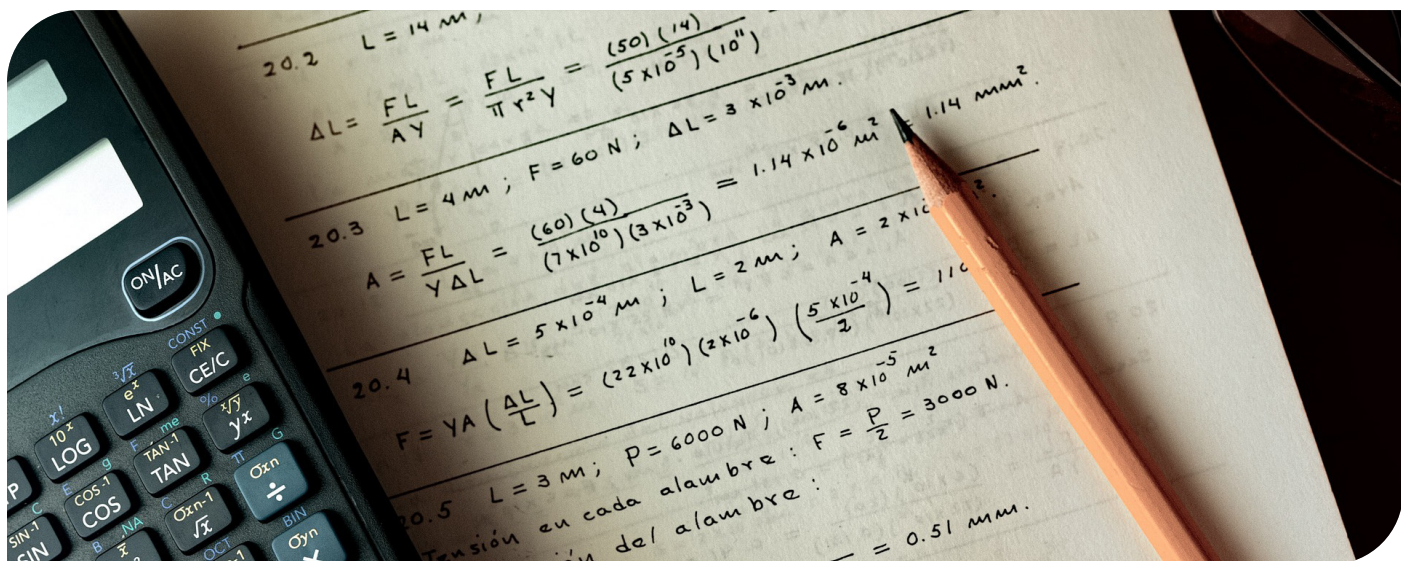 20.2 L = 14 m ;
ΔL = FL/AY = FL/πr²Y = (50)(14)/(5x10⁻⁵)(10¹¹)
20.3 L = 4 m ; F = 60 N ; ΔL = 3 x10⁻³ m.
A = FL/YΔL = (60)(4)/(7x10¹⁰)(3x10⁻³) = 1.14 x10⁻⁶ m² = 1.14 mm².
20.4 ΔL = 5 x10⁻⁴ m ; L = 2 m ; A = 2 x10
F = YA (ΔL/L) = (22x10¹⁰)(2x10⁻⁶) (5x10⁻⁴/2) = 110
20.5 L = 3 m ; P = 6000 N ; A = 8 x10⁻⁵ m²
Tensión en cada alambre : F = P/2 = 3000 N.
del alambre :
= 0.51 mm.
ON/AC
CONST
FIX
CE/C
³√x
eˣ
LN
%
e
ˣ√y
yˣ
x!
10ˣ
LOG
F
me
TAN⁻¹
TAN
π
G
σxn
÷
P
E
g
COS⁻¹
COS
C
R
σxn-1
√x
BIN
σyn
C
SIN⁻¹
SIN
B
NA
x̄
OCT